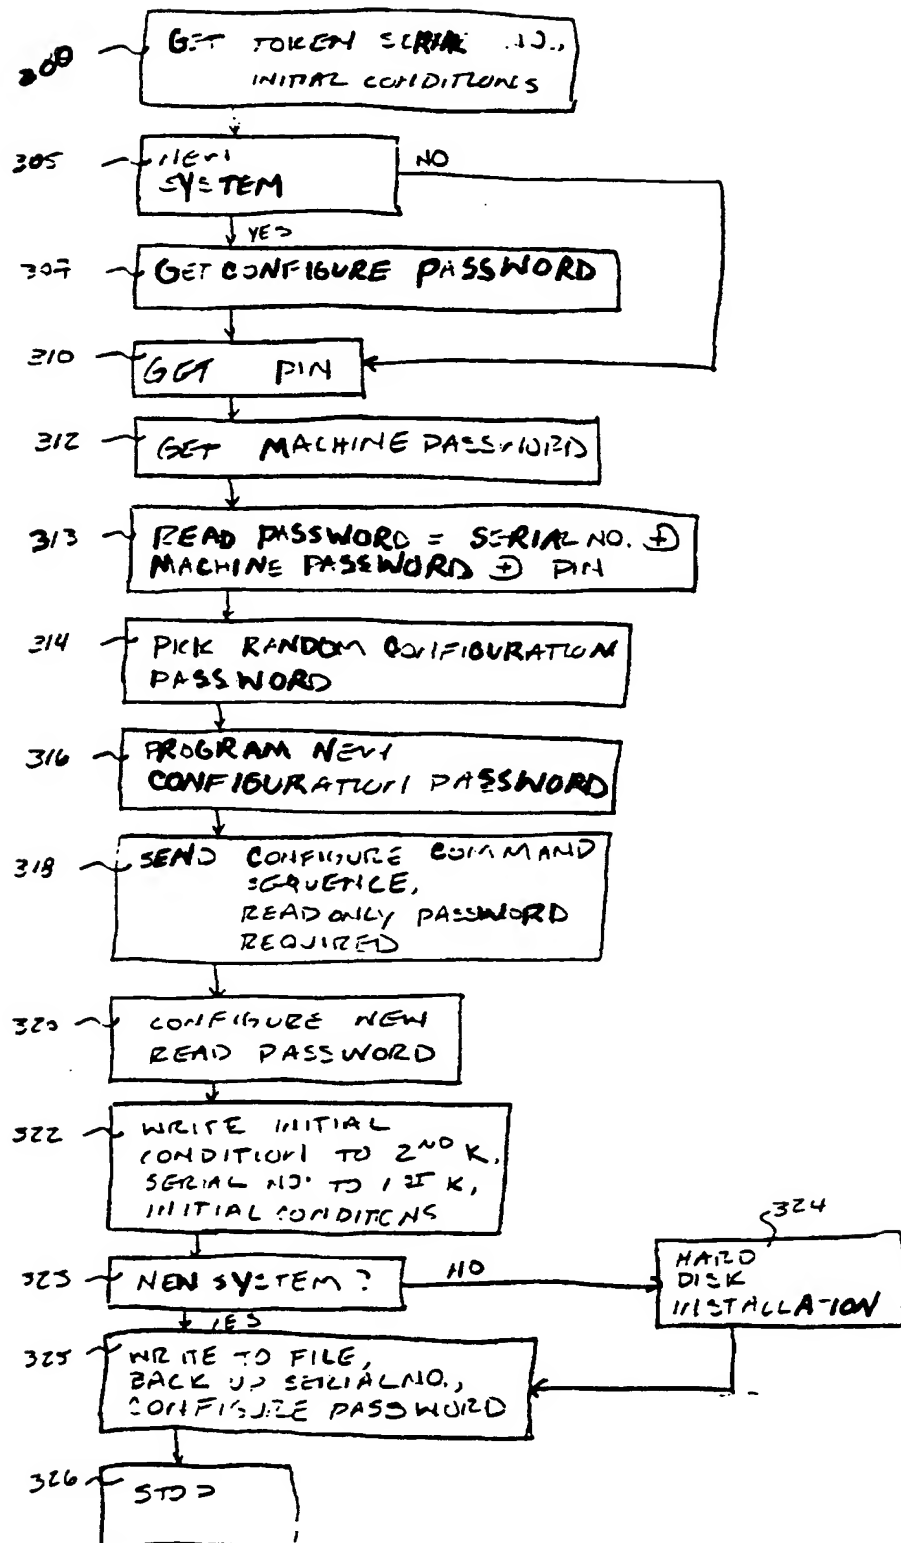 300
GET TOKEN SERIAL NO.,
INITIAL CONDITIONS
305
NEW
SYSTEM
NO
YES
307
GET CONFIGURE PASSWORD
310
GET PIN
312
GET MACHINE PASSWORD
313
READ PASSWORD = SERIAL NO. ⊕
MACHINE PASSWORD ⊕ PIN
314
PICK RANDOM CONFIGURATION
PASSWORD
316
PROGRAM NEW
CONFIGURATION PASSWORD
318
SEND CONFIGURE COMMAND
SEQUENCE,
READ ONLY PASSWORD
REQUIRED
320
CONFIGURE NEW
READ PASSWORD
322
WRITE INITIAL
CONDITION TO 2ND K,
SERIAL NO. TO 1ST K,
INITIAL CONDITIONS
323
NEW SYSTEM?
NO
324
HARD
DISK
INSTALLATION
YES
325
WRITE TO FILE,
BACK UP SERIAL NO.,
CONFIGURE PASSWORD
326
STOP